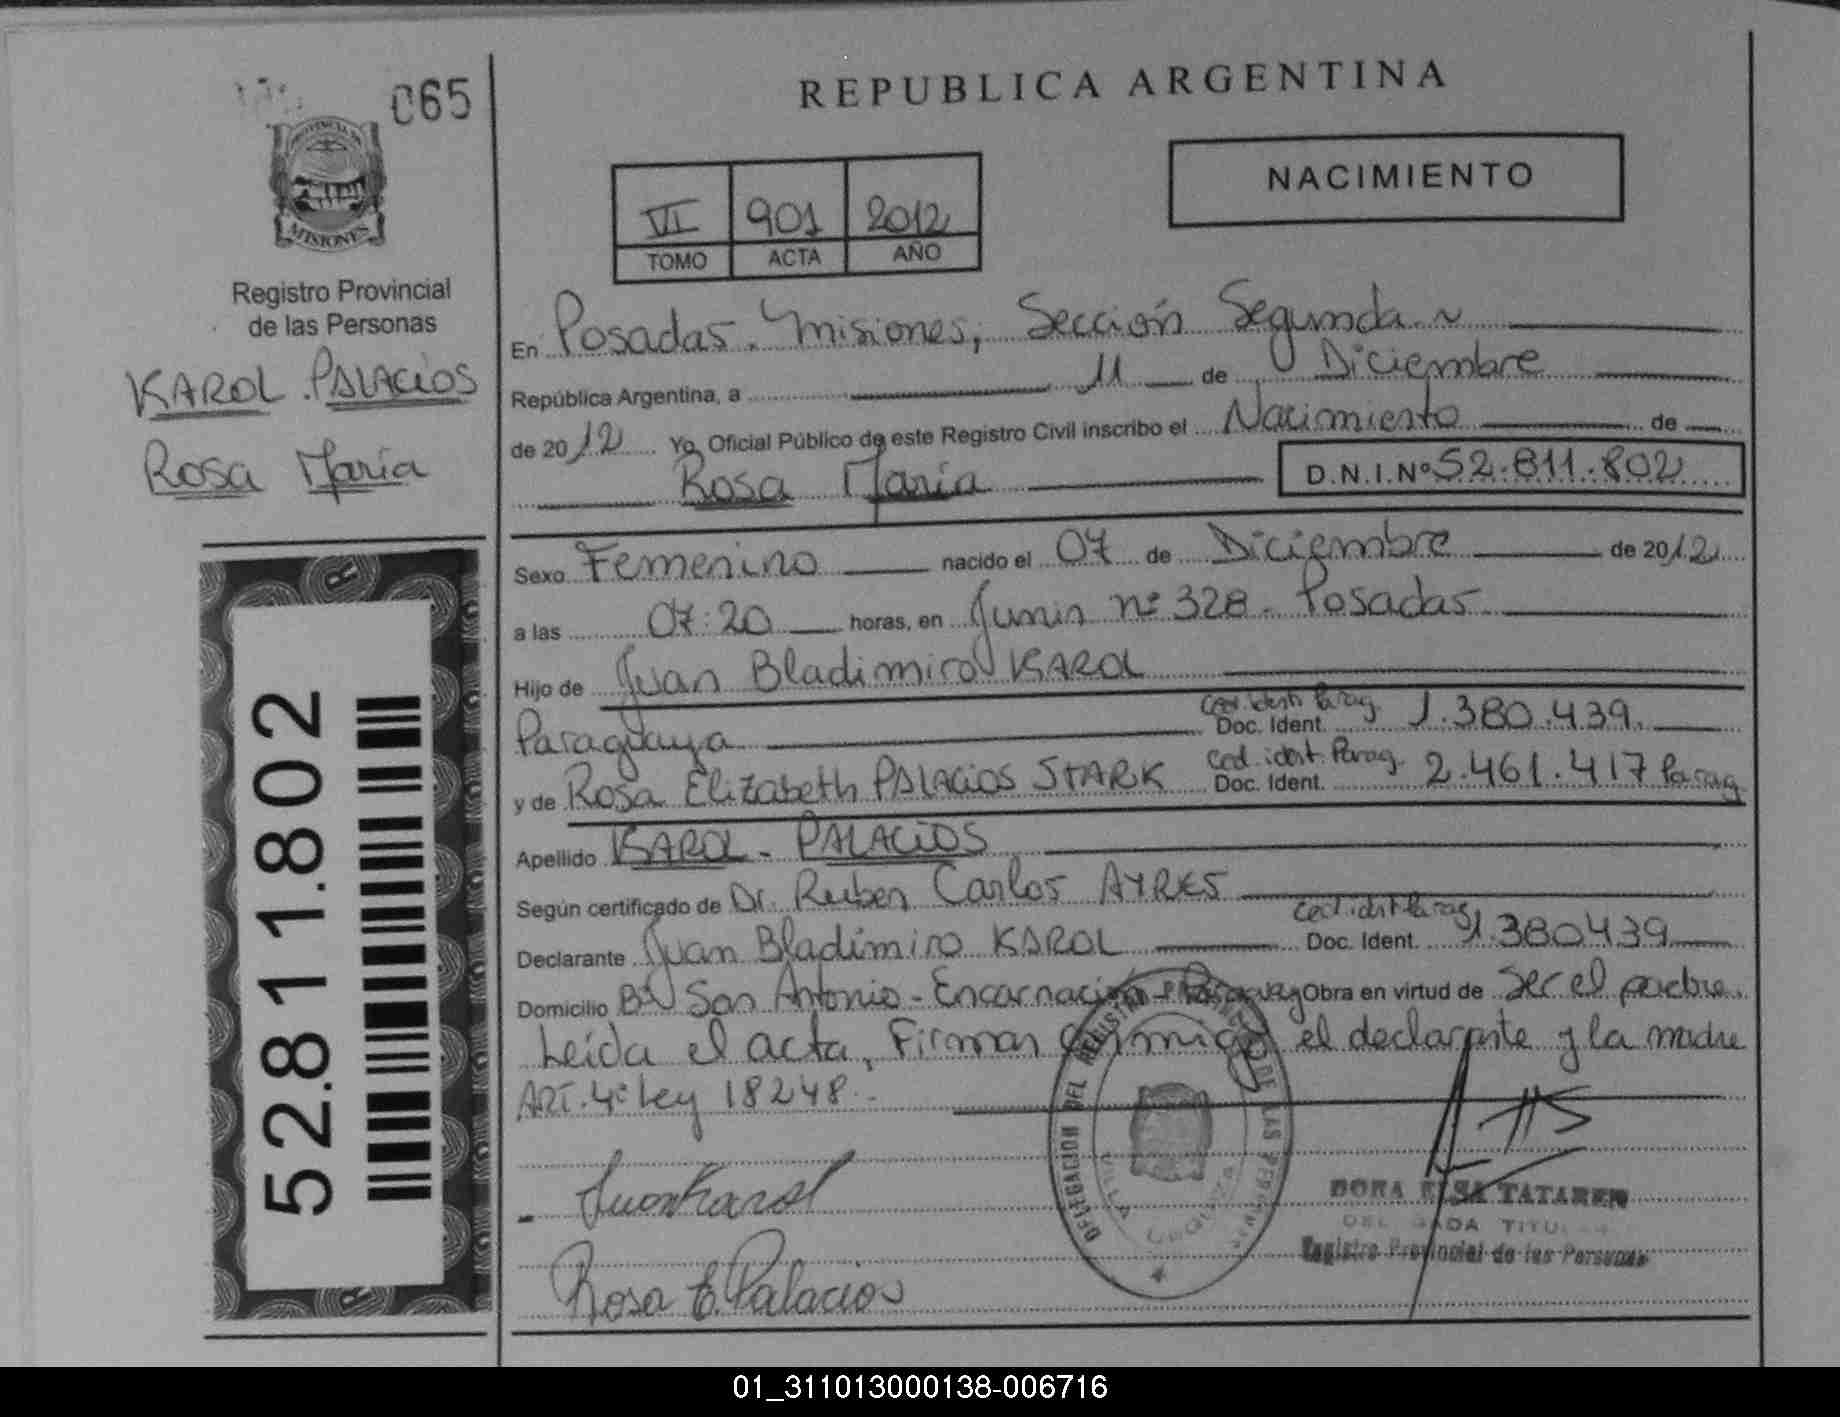 065
PROVINCIA DE
MISIONES
Registro Provincial
de las Personas
KAROL PALACIOS
Rosa María
52.811.802
REPUBLICA ARGENTINA
NACIMIENTO
VI 901 2012
TOMO ACTA AÑO
En Posadas. Misiones, Sección Segunda
República Argentina, a 11 de Diciembre
de 2012 Yo, Oficial Público de este Registro Civil inscribo el Nacimiento de
Rosa María D.N.I.Nº 52.811.802
Sexo Femenino nacido el 07 de Diciembre de 2012
a las 07:20 horas, en Junin nº 328 - Posadas
Hijo de Juan Bladimiro KAROL
Ced. ident. Parag.
Paraguaya Doc. Ident. 1.380.439.
Ced. ident. Parag.
y de Rosa Elizabeth PALACIOS STARK Doc. Ident. 2.461.417 Parag
Apellido KAROL - PALACIOS
Según certificado de Dr. Ruben Carlos AYRES
Ced. ident Parag
Declarante Juan Bladimiro KAROL Doc. Ident. 1.380439
Domicilio Bº San Antonio - Encarnación - Paraguay Obra en virtud de ser el padre.
Leída el acta, Firman conmigo el declarante y la madre
ART. 4º Ley 18248.-
Juan Karol
Rosa E. Palacios
DELEGACION DEL REGISTRO PROVINCIAL DE LAS PERSONAS
VILLA URQUIZA
DORA ELSA TATAREN
DELEGADA TITULAR
Registro Provincial de las Personas
01_311013000138-006716